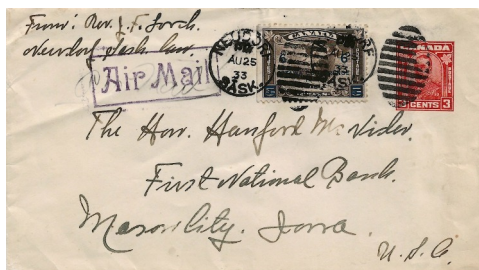 From: Rev. J. F. Lorch
Neudorf Sask. Can.
Air Mail
NEUDORF
AU 25
33
SASK.
CANADA
6
CANADA
3 CENTS 3
The Hon. Hanford McNider.
First National Bank.
Mason City. Iowa.
U.S.A.